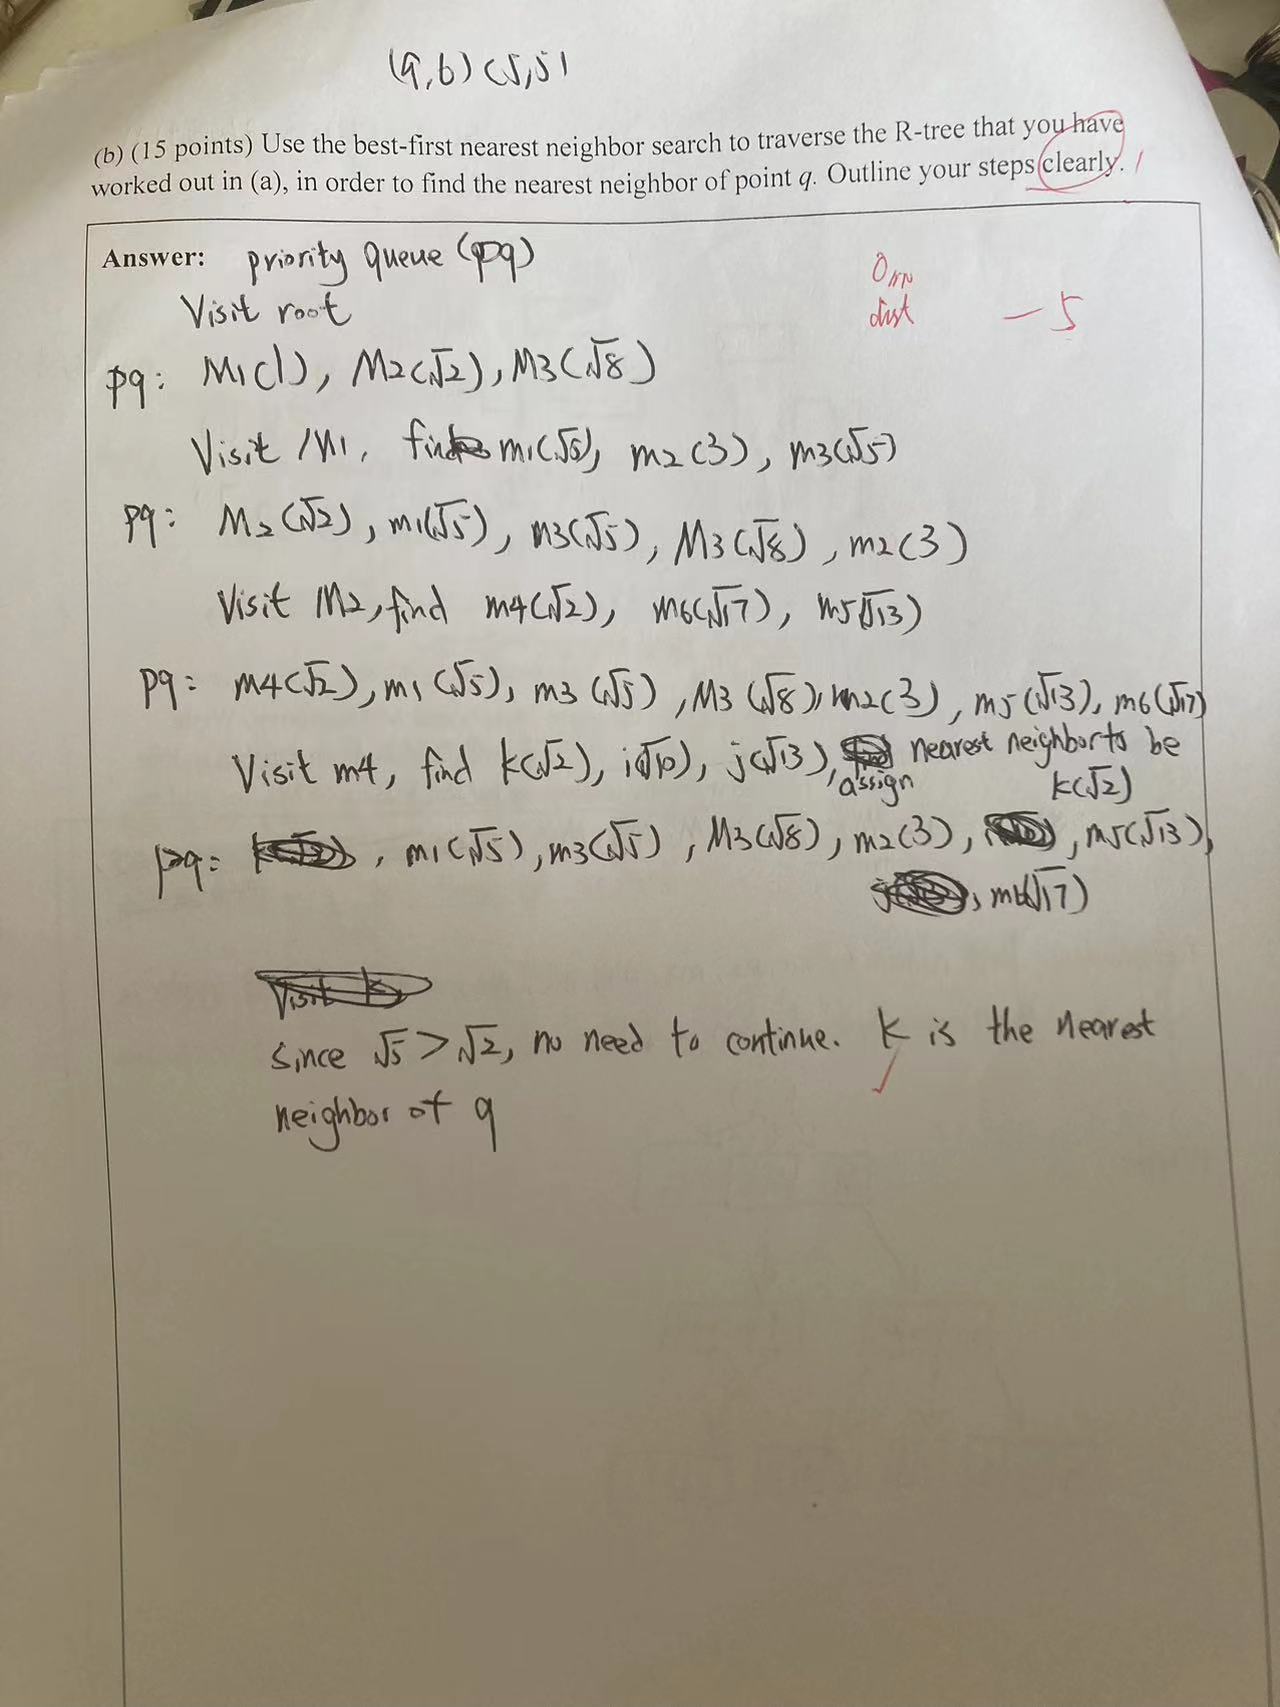 (9,6) (5,5)
(b) (15 points) Use the best-first nearest neighbor search to traverse the R-tree that you have
worked out in (a), in order to find the nearest neighbor of point q. Outline your steps clearly.
Answer: priority queue (pq)
Visit root
O_NN
dist — 5
pq: M1(1), M2(√2), M3(√8)
Visit M1, find m1(√5), m2(3), m3(√5)
pq: M2(√2), m1(√5), m3(√5), M3(√8), m2(3)
Visit M2, find m4(√2), m6(√17), m5(√13)
pq: m4(√2), m1(√5), m3(√5), M3(√8), m2(3), m5(√13), m6(√17)
Visit m4, find k(√2), i(√10), j(√13), assign nearest neighbor to be
k(√2)
pq: , m1(√5), m3(√5), M3(√8), m2(3), , m5(√13),
, m6(√17)
Visit k
since √5 > √2, no need to continue. k is the nearest
neighbor of q